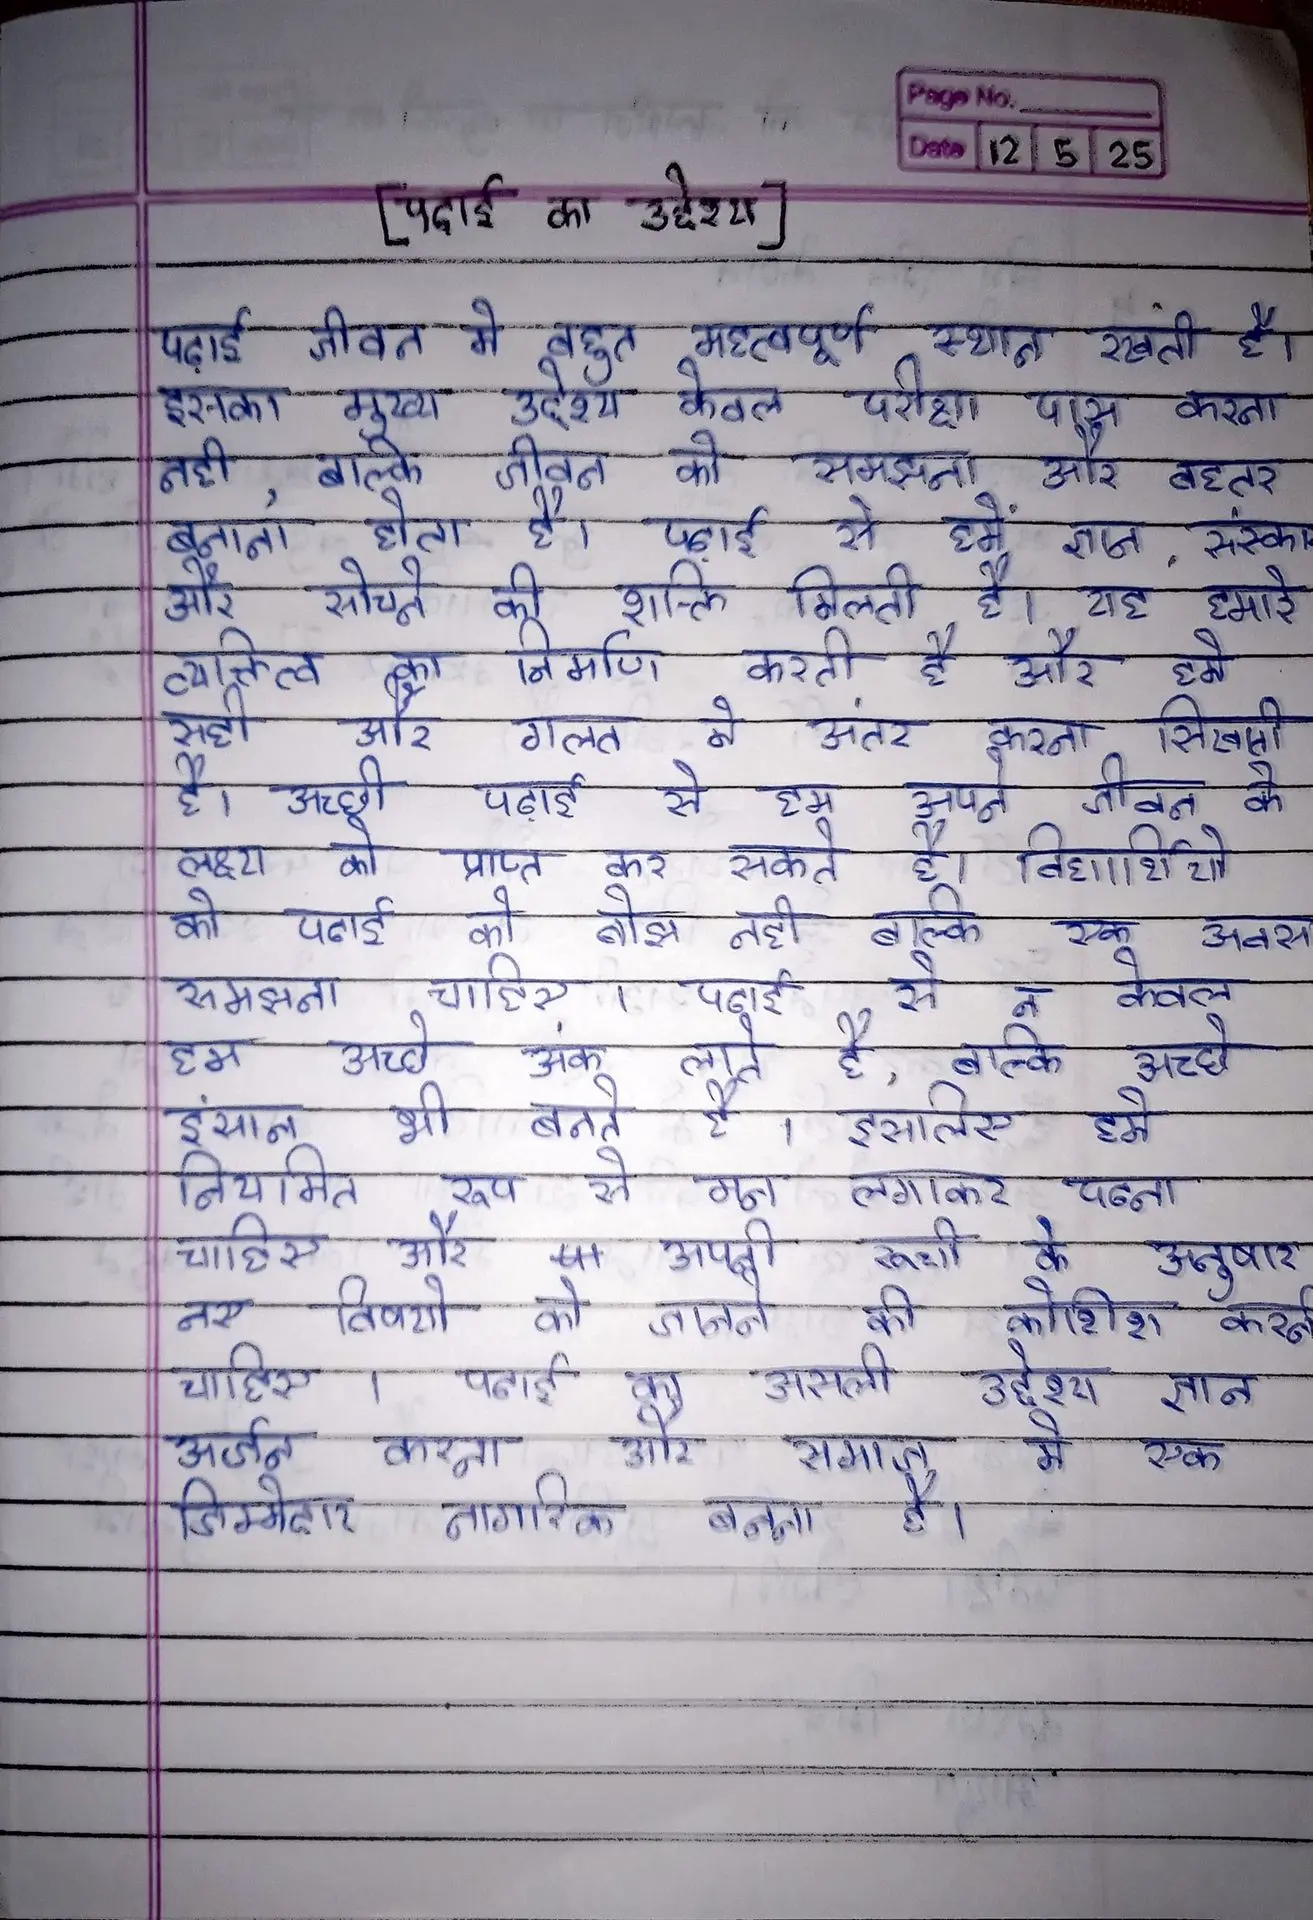 Page No.
Date 12 5 25
[पढाई का उद्देश्य]
पढ़ाई जीवन मे बहुत महत्वपूर्ण स्थान रखती है।
इसका मुख्य उद्देश्य केवल परीक्षा पास करना
नही, बल्कि जीवन को समझना और बहतर
बनाना होता है। पढ़ाई से हमें ज्ञान, संस्कार
और सोचने की शक्ति मिलती है। यह हमारे
व्यक्तित्व का निर्माण करती है और हमे
सही और गलत मे अंतर करना सिखाती
है। अच्छी पढ़ाई से हम अपने जीवन के
लक्ष्य को प्राप्त कर सकते है। विद्यार्थियो
को पढाई को बोझ नही बल्कि एक अवसर
समझना चाहिए। पढाई से न केवल
हम अच्छे अंक लाते है, बल्कि अच्छे
इंसान भी बनते है। इसलिए हमे
नियमित रूप से मन लगाकर पढना
चाहिए और अपनी रूची के अनुषार
नए विषयो को जानने की कोशिश करनी
चाहिए। पढाई का असली उद्देश्य ज्ञान
अर्जन करना और समाज मे एक
जिम्मेदार नागरिक बनना है।